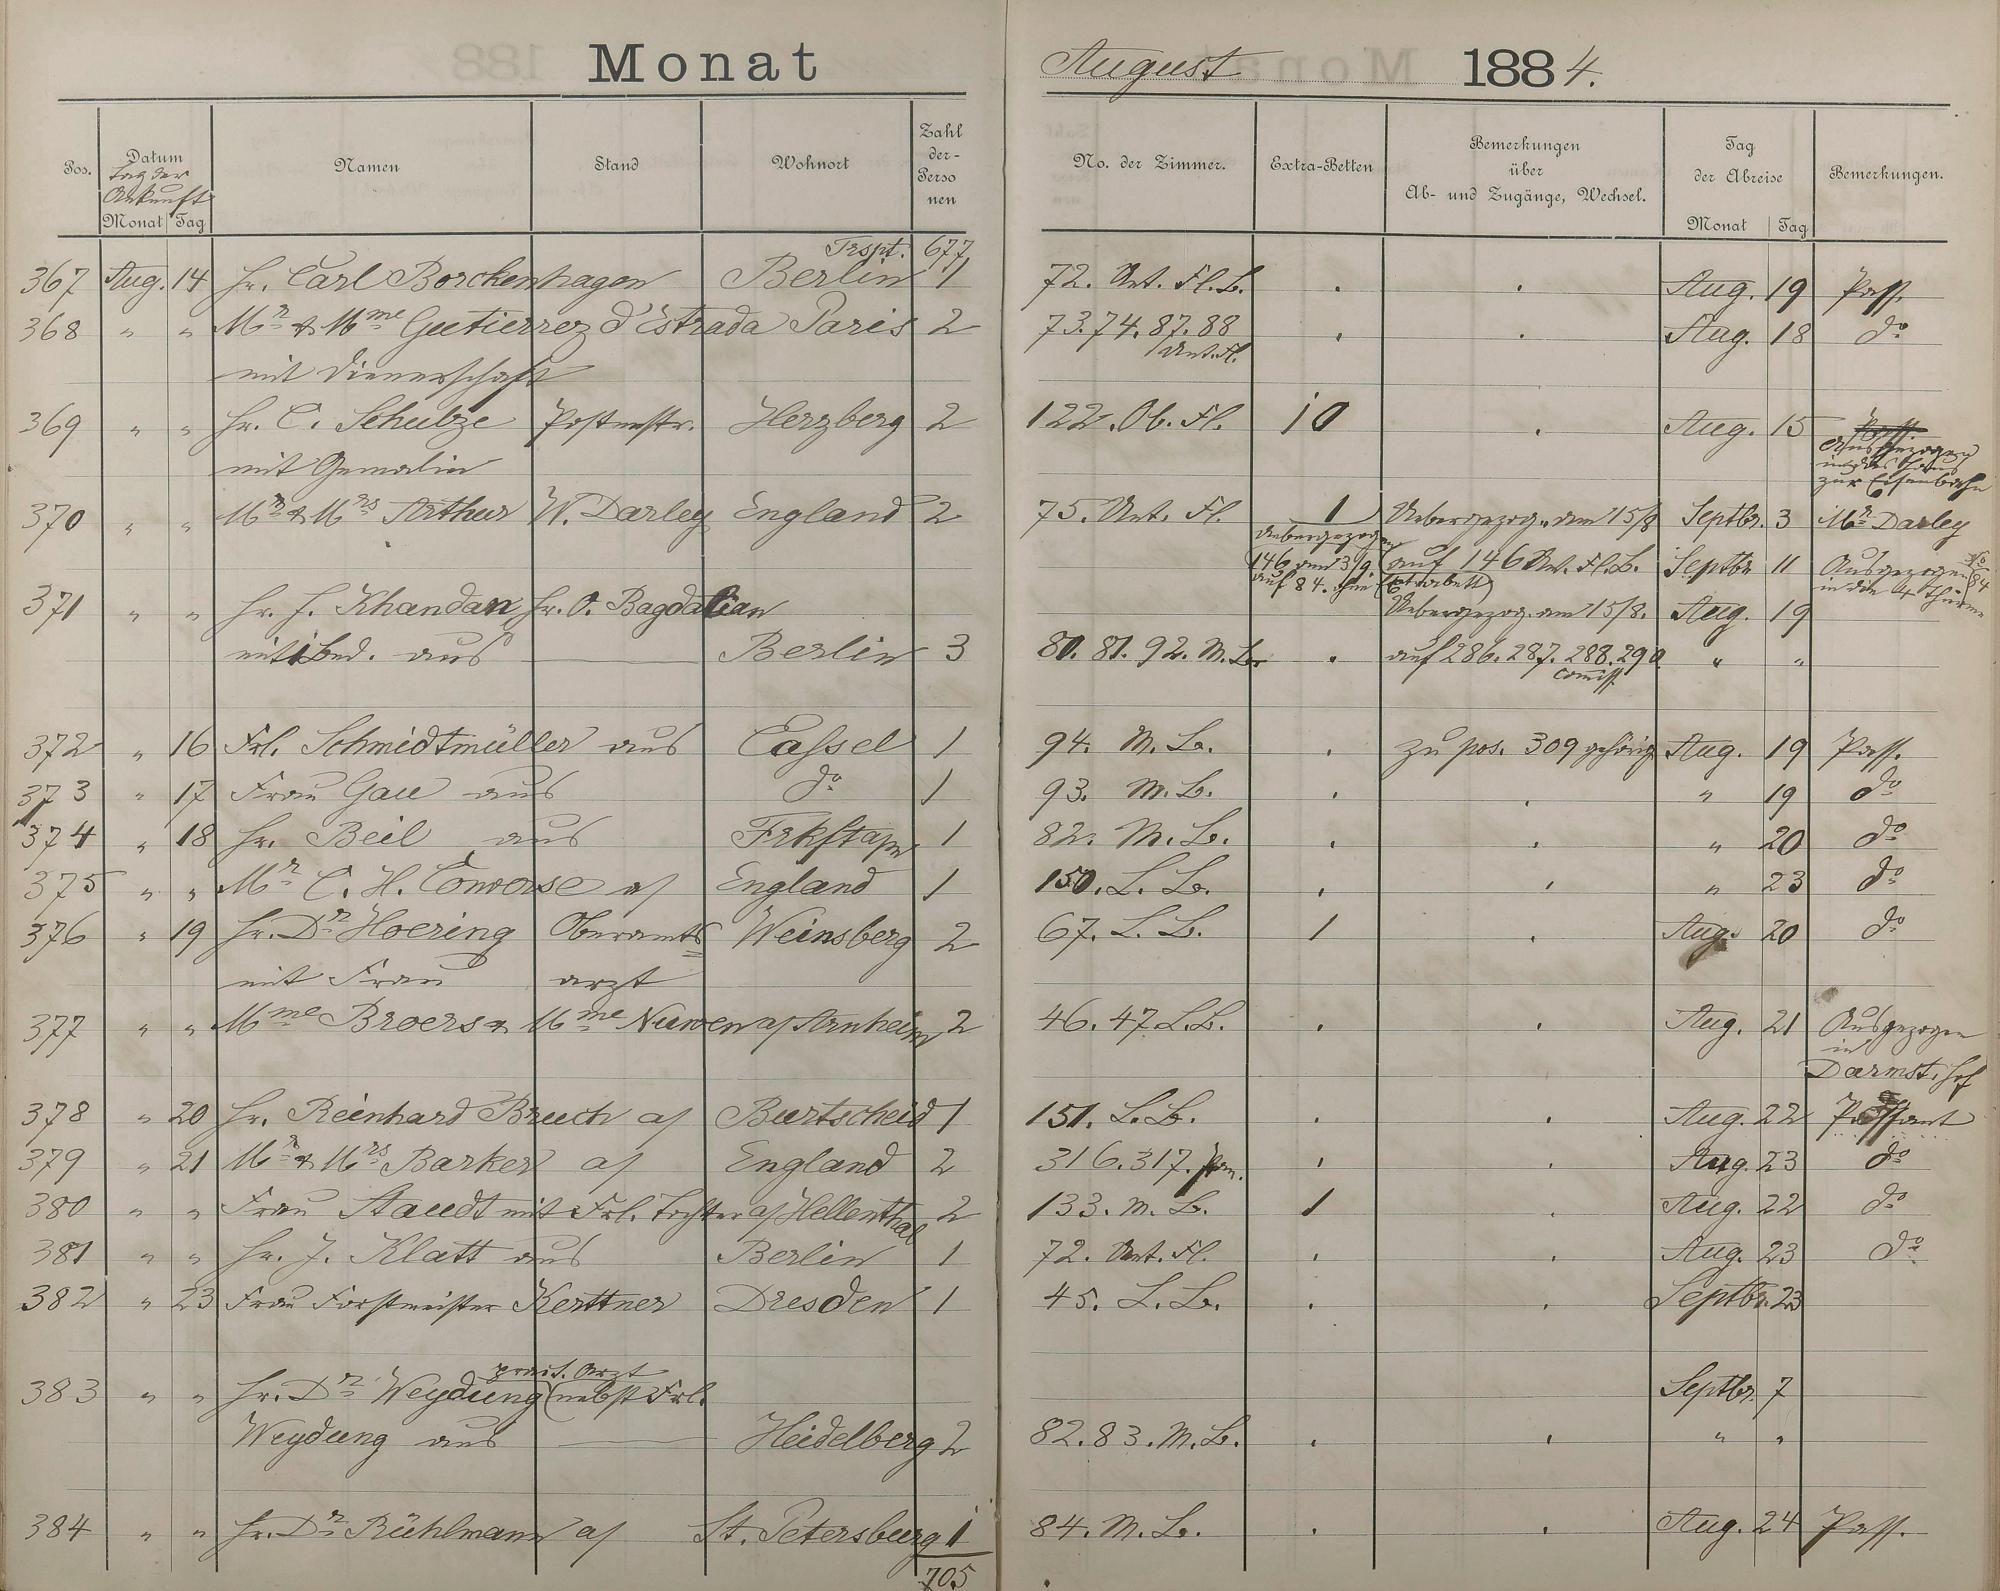 Monat August 1884.
Pos. Datum Tag der Ankunft Monat Tag Namen Stand Wohnort Zahl der Perso nen No. der Zimmer. Extra-Betten Bemerkungen über Ab- und Zugänge, Wechsel. Tag der Abreise Monat Tag Bemerkungen.
Trspt. 677
367 Aug. 14 Hr. Carl Borckenhagen Berlin 1 72. Unt. Fl. B. . . Aug. 19 Pass.
368 " " Mr & Mme Gutierrez d'Estrada Paris 2 73.74.87.88 Unt. Fl. . . Aug. 18 do
mit Dienerschaft
369 " " Hr. C. Schulze Postmstr. Herzberg 2 122. Ob. Fl. 10 . Aug. 15 Pass. Ausgezogen in das Haus zur Eisenbahn
mit Gemalin
370 " " Mr & Mrs Arthur W. Darley England 2 75. Unt. Fl. 1 Uebergezog. am 15/8 Septbr. 3 Mr Darley
Uebergezogen 146 am 3/9. auf 84. ohne (Extrabett) auf 146 Unt. Fl. B. Septbr 11 Ausgezogen No 84 in die 4 Thürme
371 " " Hr. J. Khandan Hr. O. Bagdalian Uebergezog. am 15/8. Aug. 19
mit 1 Bed. aus Berlin 3 80. 81. 92. M. B. . auf 286. 287. 288. 290. " "
372 " 16 Frl. Schmidtmüller aus Cassel 1 94. M. B. . zu pos. 309 gehörig Aug. 19 Pass.
373 " 17 Frau Gau aus do 1 93. M. B. . . " 19 do
374 " 18 Hr. Beil aus Frkft a/m 1 82. M. B. . . " 20 do
375 " " Mr C. H. Converse a/ England 1 150. L. B. . . " 23 do
376 " 19 Hr. Dr Hoering Oberamts Weinsberg 2 67. L. B. 1 . Aug. 20 do
mit Frau arzt
377 " " Mme Broers & Mme Nuwen a/ Arnheim 2 46. 47 L. B. . . Aug. 21 Ausgezogen in Darmst. Hof
378 " 20 Hr. Reinhard Bruch a/ Burtscheid 1 151. L. B. . . Aug. 22 Passant
379 " 21 Mr & Mrs Barker a/ England 2 316. 317. . . Aug. 23 do
380 " " Frau Staudt mit Frl. Tochter a/ Hellenthal 2 133. M. B. 1 . Aug. 22 do
381 " " Hr. J. Klatt aus Berlin 1 72. Unt. Fl. . . Aug. 23 do
382 " 23 Frau Forstmeister Kerttner Dresden 1 45. L. B. . . Septbr. 23
prakt. Arzt
383 " " Hr. Dr Weydung (nebst Frl. Septbr. 7
Weydung aus Heidelberg 2 82. 83. M. B. . . " "
384 " " Hr. Dr Rühlmann a/ St. Petersburg 1 84. M. B. . . Aug. 24 Pass.
705